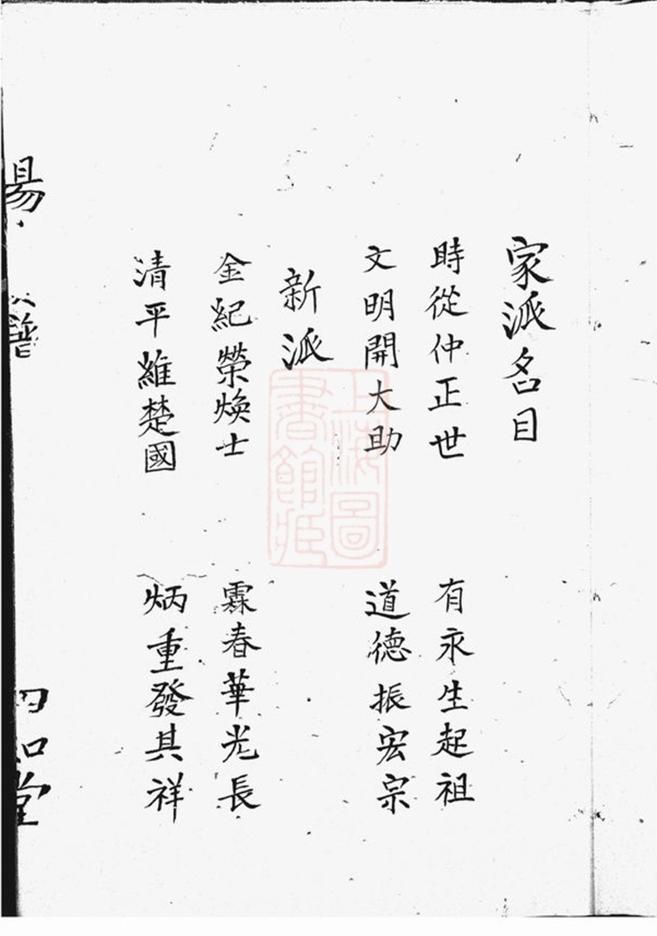 家派名目
時從仲正世 有永生起祖
文明開大助 道德振宏宗
新派
金紀榮煥士 霖春華光長
清平維楚國 炳重發其祥
譜
堂
上海圖書館藏